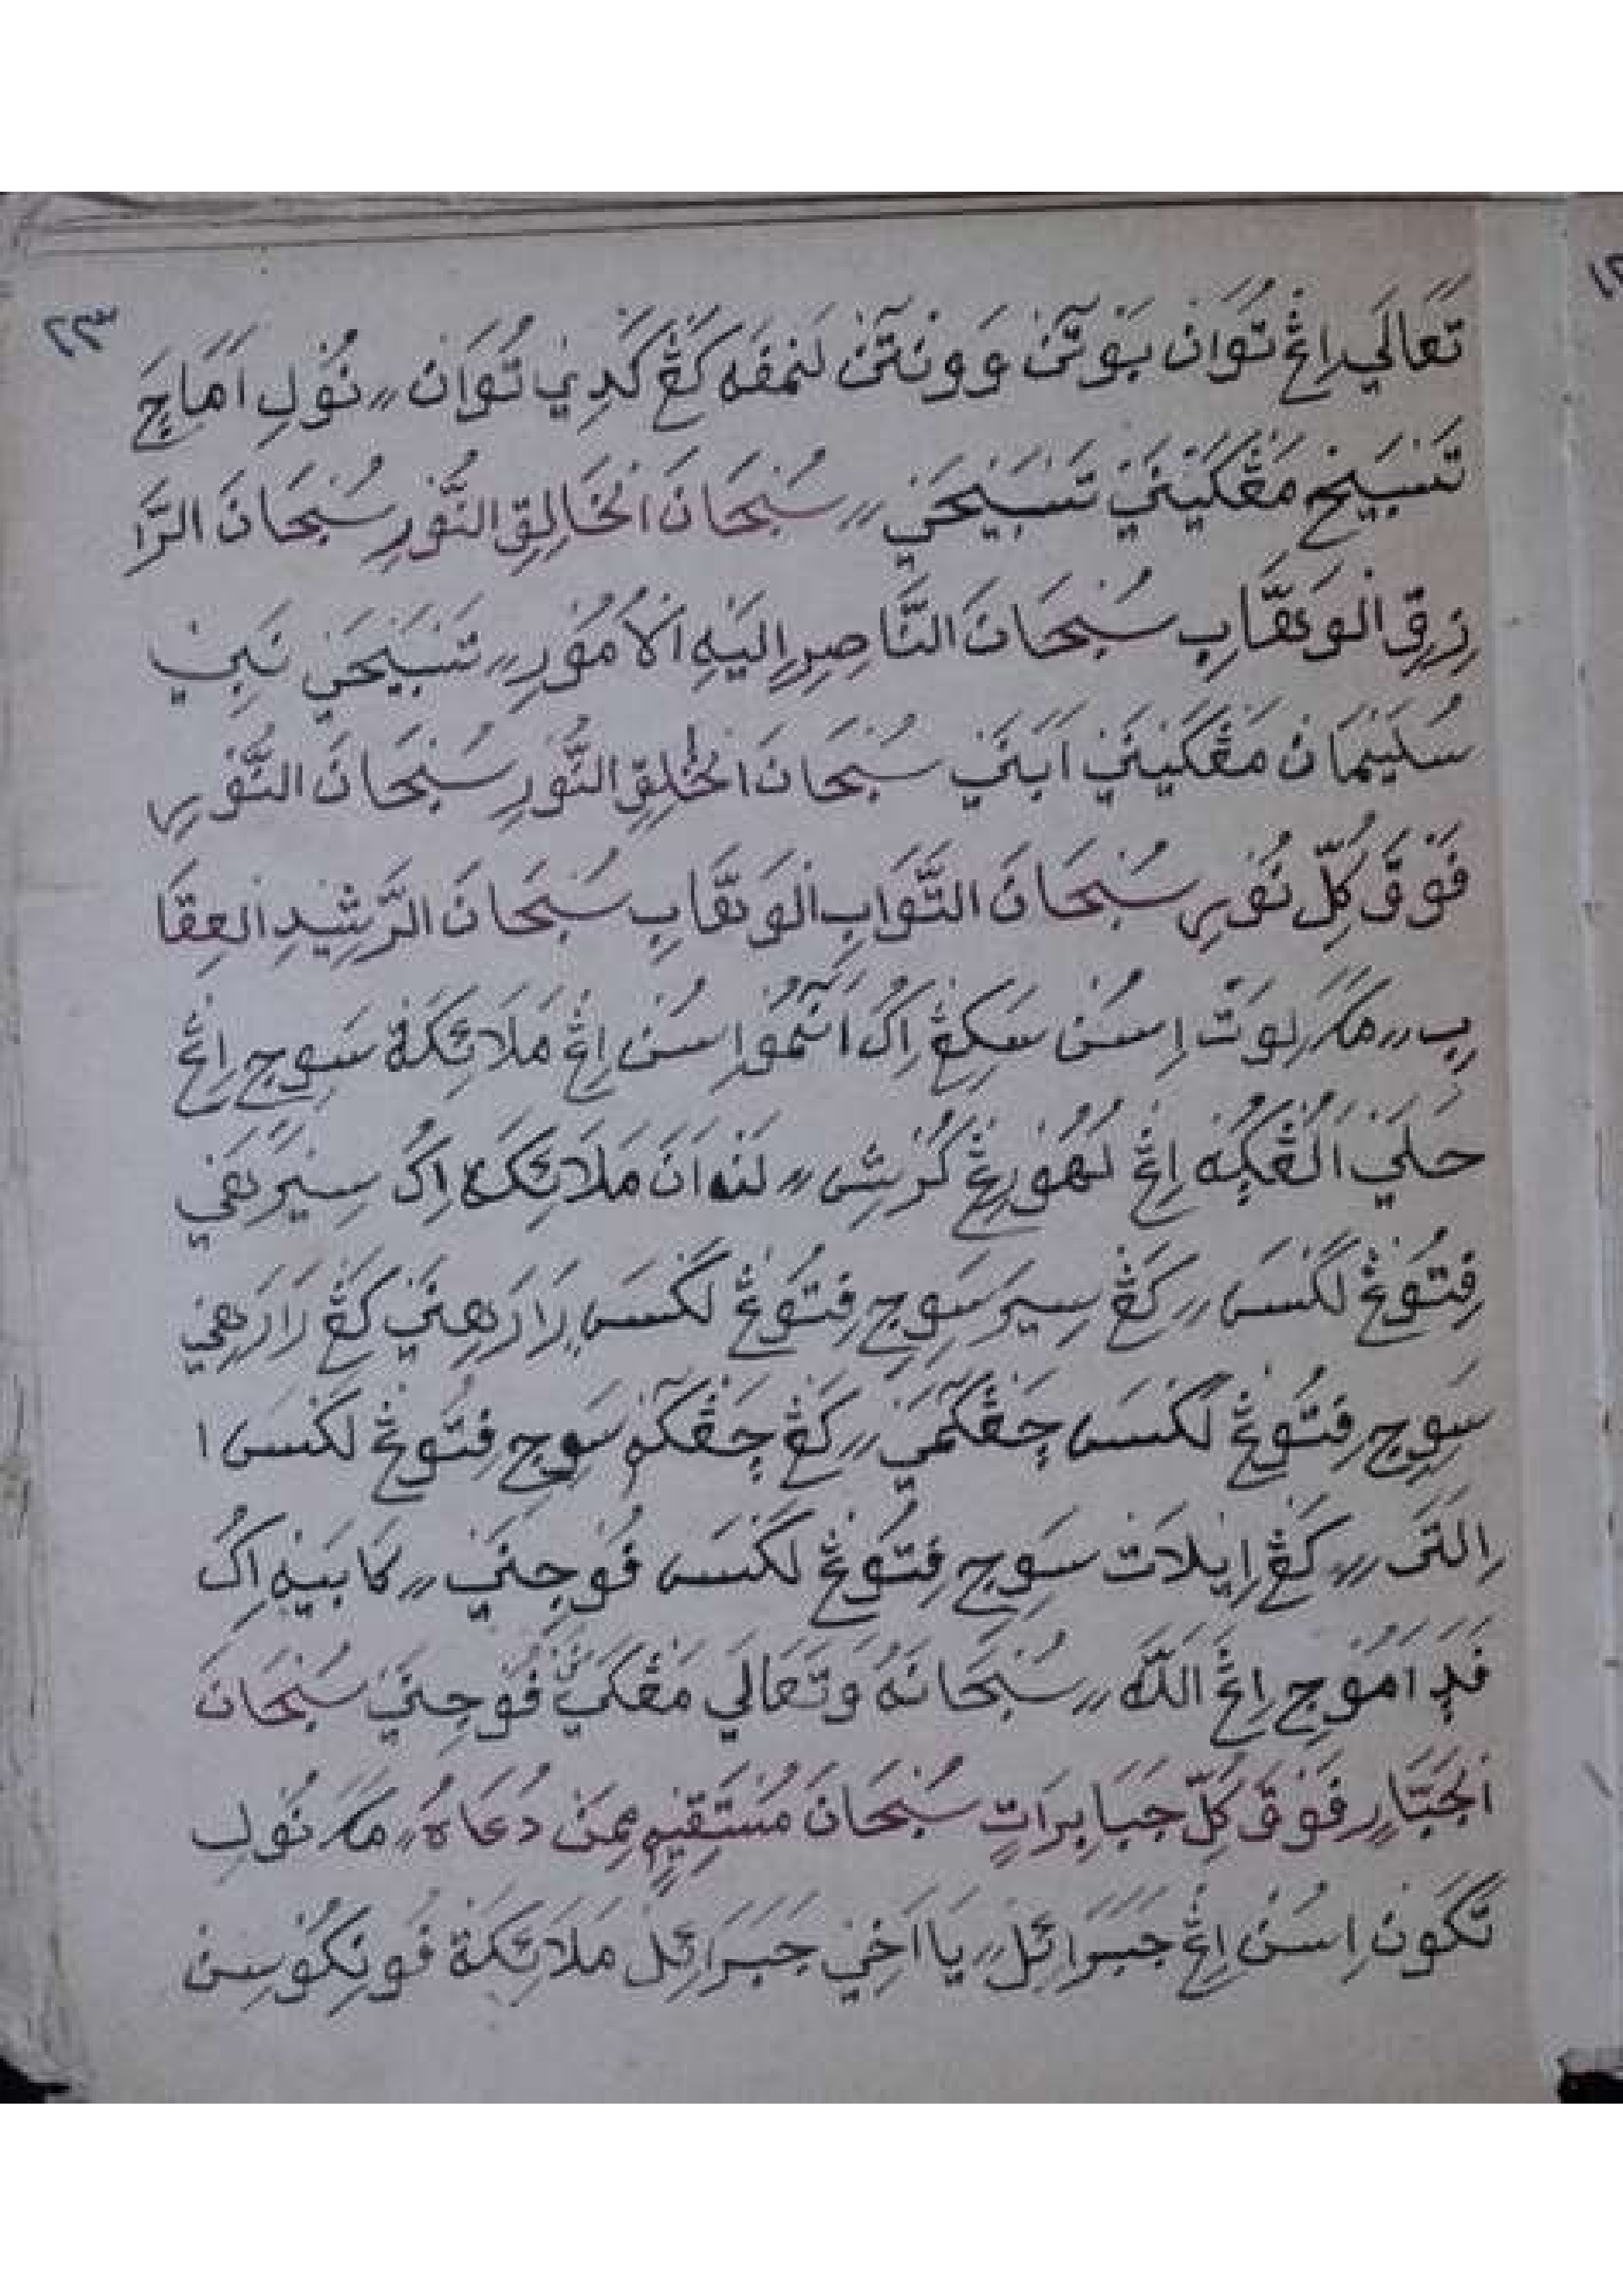 ٢٣
تَعَالَي اِڠْ تُوَان بَوْتَنْ وَونْتَنْ لَنمفَه كَڠْ كَدِيْ تُوَان ـ نُوْلِ اَمَاچَ
تَسْبَيْحْ مَڠْكَيْنَيْ تَسْبَيْحَيْ ـ سُبْحَانَ الْخَالِقِ النُّوْرِ سُبْحَانَ الرَّا
زِقِ الْوَهَّابِ سُبْحَانَ النَّاصِرِ اِلَيْهِ الْاُمُوْرِ ـ تَسْبَيْحَيْ نَبِيْ
سُلَيْمَانْ مَڠْكَيْنَيْ اُبَنَيْ سُبْحَانَ الْخٰلِقِ النُّوْرِ سُبْحَانَ النُّوْرِ
فَوْقَ كُلِّ نُوْرٍ سُبْحَانَ التَّوَابِ الْوَهَّابِ سُبْحَانَ الرَّشِيْدِ الْعِقَا
بِ ـ مَكَ لِوَتْ اِسُنْ سَكِڠْ اِكُ اَنْمُو اِسُنْ اِڠْ مَلَائِكَةْ سَوِجِ اِڠْ
حَلَيْ اَلُڠْكُه اِڠْ لُهُوْرِڠْ كُرْسِى ـ لَنْه اَنَ مَلَائِكَة اِكُ سِيْرَهَيْ
فِتُوڠْ لَكْسَ ـ كَڠْ سِيرَ سَوِجِ فِتُوڠْ لَكْسَ رَارَهِنَيْ كَڠْ رَارَهِيْ
سَوِجِ فِتُوڠْ لَكْسَ چَڠْكَمَيْ ـ كَڠْ چَڠْكَمْ سَوِجِ فِتُوڠْ لَكْسَ ا
اِلَتَى ـ كَڠْ اِيْلَاتْ سَوِجِ فِتُوڠْ لَكْسَ فُوْجِنَيْ ـ كَابَيْهِ اِكُ
فَدَ اَمُوْجِ اِڠْ اللّٰهْ ـ سُبْحَانَهُ وَتَعَالَي مَڠْكَيْ فُوْجِنَيْ سُبْحَانَ
الْجَبَّارِ فَوْقَ كُلِّ جَبَابِرَاتٍ سُبْحَانَ مُسْتَقِيْمٍ مِمَنْ دُعَاهُ ـ مَكَ نُوْلِ
تَكُونْ اِسُنْ اِڠْ جَبَرَائِلْ ـ يَا اَخِيْ جَبَرَائِلْ مَلَائِكَةْ فُونِكُوْ سِنْ